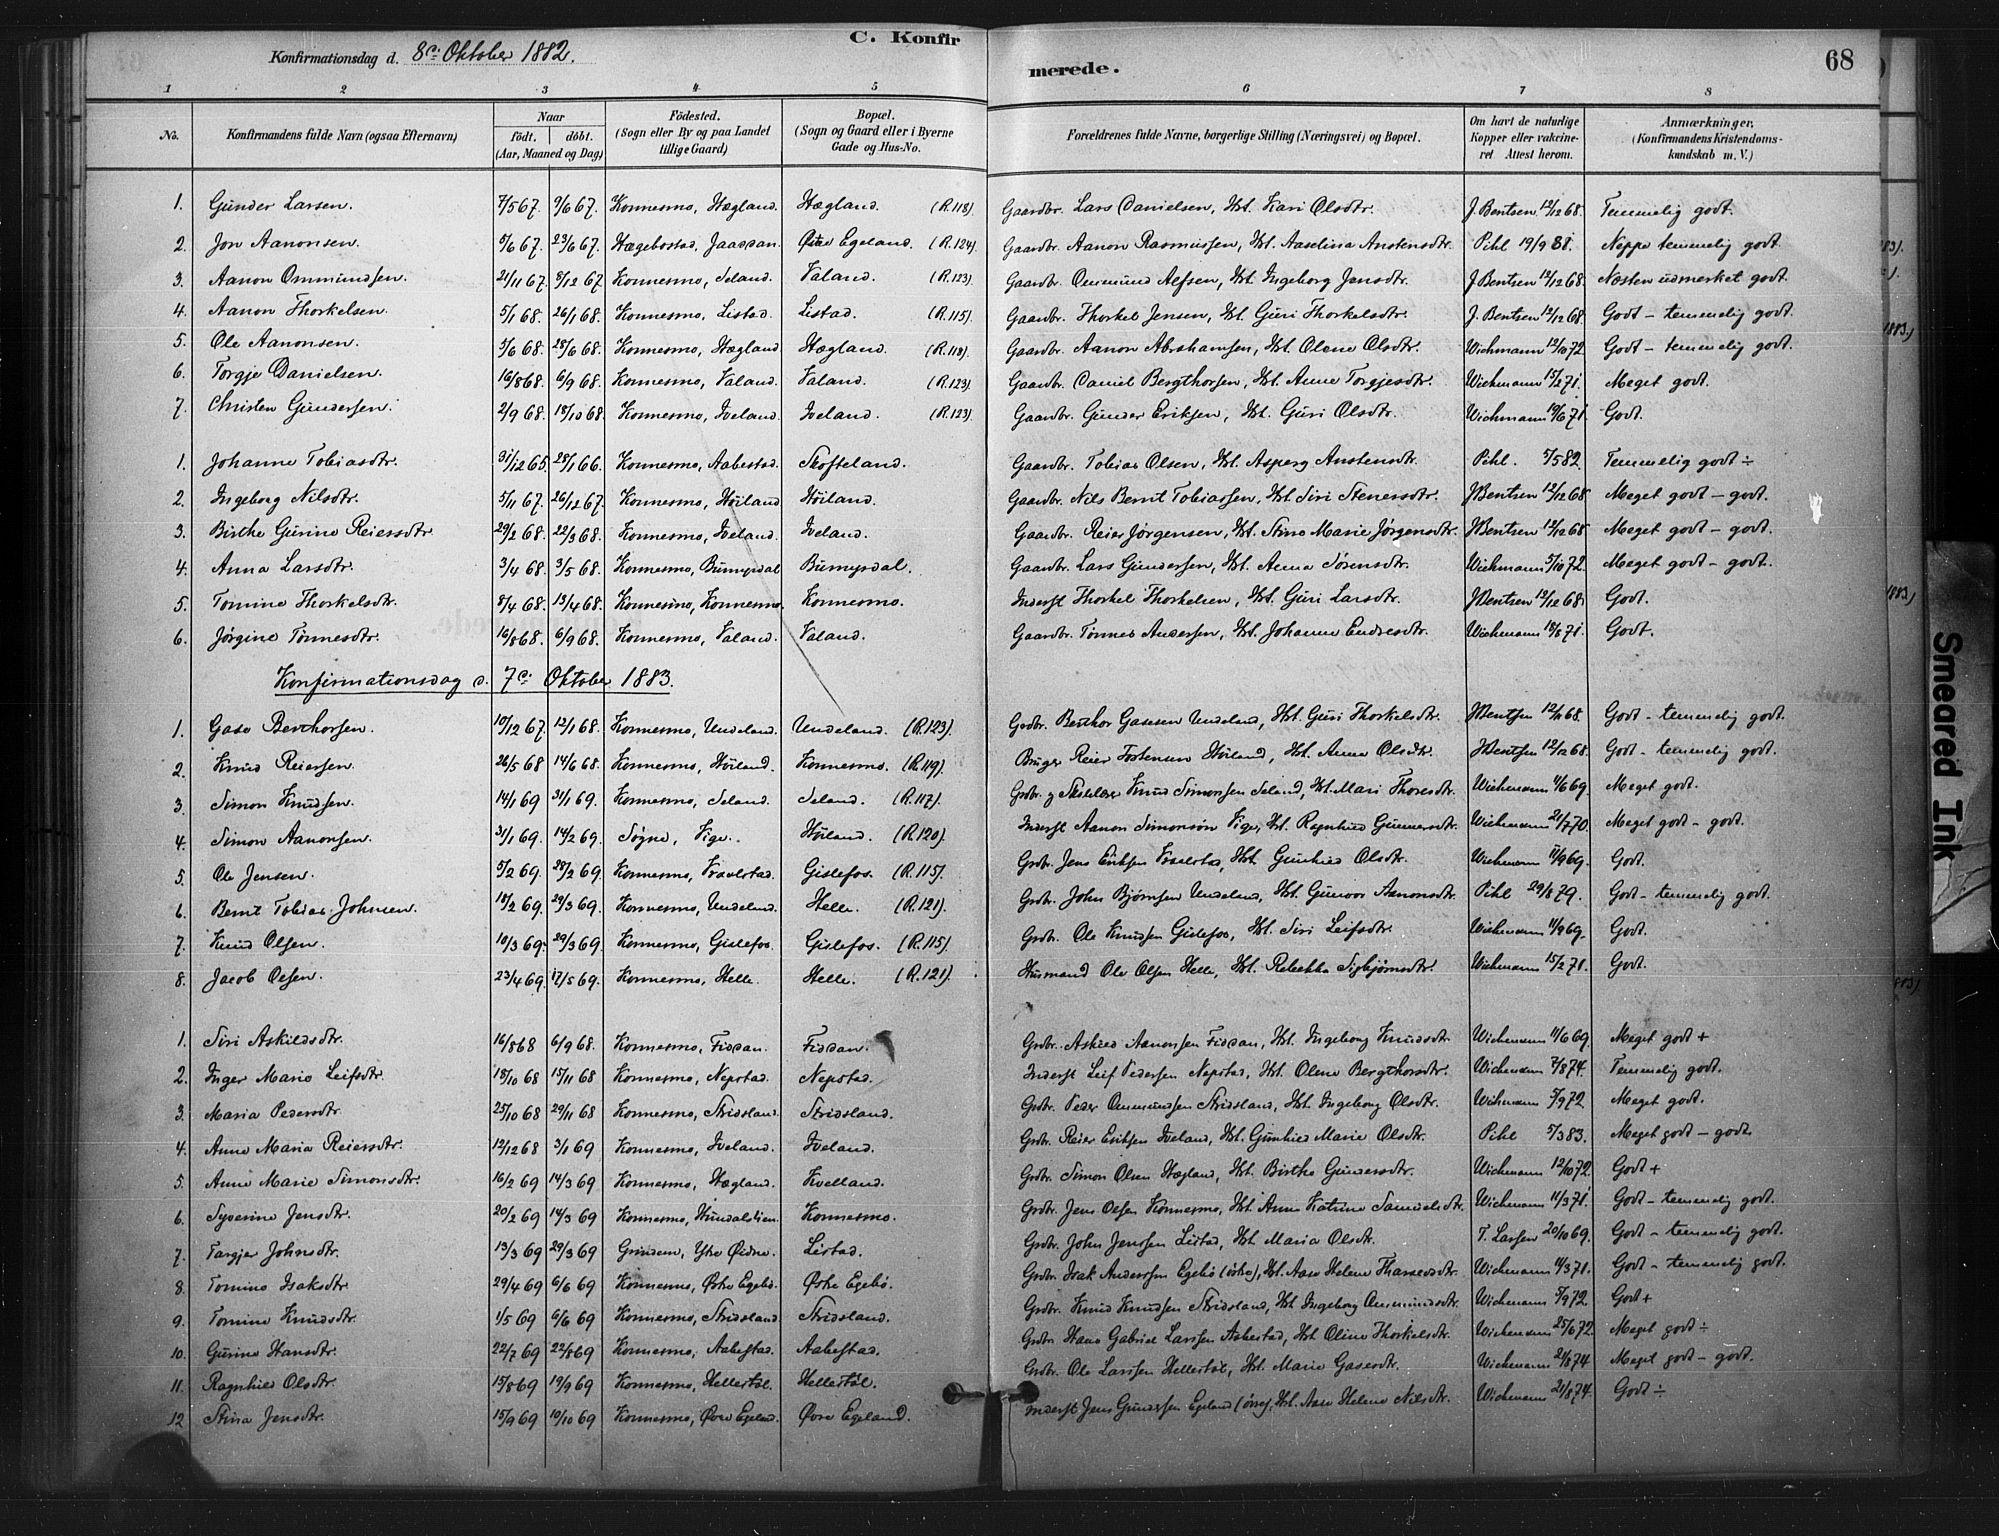 C. Konfir
merede.
68
Konfirmationsdag d. 8de Oktober 1882.
1 2 3 4 5 6 7 8
No. Konfirmandens fulde Navn (ogsaa Efternavn) Naar födt. döbt. (Aar, Maaned og Dag) Födested. (Sogn eller By og paa Landet tillige Gaard) Bopæl. (Sogn og Gaard eller i Byerne Gade og Hus-No. Forældrenes fulde Navne, borgerlige Stilling (Næringsvei) og Bopæl. Om havt de naturlige Kopper eller vakcineret Attest herom. Anmærkninger, (Konfirmandens Kristendomskundskab m. V.)
1. Gunder Larsen. 7/5 67. 9/6 67. Konnesmo, Hægland. Hægland. (R.118) Gaardbr. Lars Danielsen, Hst. Kari Olsdtr. J. Bentsen 12/12 68. Temmelig godt.
2. Jon Aanonsen. 5/6 67. 23/6 67. Hægebostad, Jaasdan. Østre Egeland. (R.124) Gaardbr. Aanon Rasmussen, Hst. Aaselina Anstensdtr. Pihl 19/9 81. Neppe temmelig godt.
3. Aanon Ommundsen. 21/11 67. 8/12 67. Konnesmo, Seland. Valand. (R.123) Gaardbr. Ommund Alfsen, Hst. Ingeborg Jensdtr. J Bentsen 12/12 68. Næsten udmerket godt.
4. Aanon Thorkelsen. 5/1 68. 26/1 68. Konnesmo, Listad. Listad. (R.115) Gaardbr. Thorkel Jensen, Hst. Guri Thorkelsdtr. J. Bentsen 12/12 68. Godt - temmelig godt.
5. Ole Aanonsen. 3/6 68. 28/6 68. Konnesmo, Hægland. Hægland. (R.118) Gaardbr. Aanon Abrahamsen, Hst. Olene Olsdtr. Wichmann 12/10 72. Godt - temmelig godt.
6. Torgje Danielsen. 16/8 68. 6/9 68. Konnesmo, Valand. Valand. (R.123) Gaardbr. Daniel Bergthorsen, Hst. Anne Torgjesdtr. Wichmann 15/2 71. Meget godt.
7. Christen Gundersen. 2/9 68. 18/10 68. Konnesmo, Iveland. Iveland. (R.123) Gaardbr. Gunder Eriksen, Hst. Guri Olsdtr. Wichmann 19/6 71. Godt.
1. Johanne Tobiasdtr. 31/12 65. 28/1 66. Konnesmo, Aabestad. Skofteland. Gaardbr. Tobias Olsen, Hst. Asperg Anstensdtr. Pihl. 5/5 82. Temmelig godt ÷
2. Ingeborg Nilsdtr. 5/11 67. 26/12 67. Konnesmo, Høiland. Høiland. Gaardbr. Nils Bernt Tobiassen, Hst. Siri Stenersdtr. J Bentsen 12/12 68. Meget godt - godt.
3. Birthe Gurine Reiersdtr 29/2 68. 22/3 68. Konnesmo, Iveland. Iveland. Gaardbr. Reier Jørgensen, Hst. Stine Marie Jørgensdtr. J Bentsen 12/12 68 Meget godt - godt.
4. Anna Larsdtr. 3/4 68. 3/5 68. Konnesmo, Bumysdal Bumysdal. Gaardbr. Lars Gundersen, Hst. Anna Sørensdtr. Wichmann 5/10 72. Meget godt - godt.
5. Tomine Thorkelsdtr. 8/4 68. 13/4 68. Konnesmo, Konnesmo. Konnesmo. Inderst Thorkel Thorkelsen, Hst. Guri Larsdtr. J Bentsen 12/12 68. Godt.
6. Jørgine Tønnesdtr. 16/8 68. 6/9 68. Konnesmo, Valand. Valand. Gaardbr. Tønnes Andersen, Hst. Johanne Endresdtr. Wichmann 18/8 71. Godt.
Konfirmationsdag d. 7de Oktober 1883.
1. Gase Berthorsen. 10/12 67. 12/1 68. Konnesmo, Undeland. Undeland. (R.123). Grdbr. Benthor Gasesen Undeland, Hst. Guri Thorkelsdtr. J Bentsen 12/12 68. Godt - temmelig godt.
2. Knud Reiersen. 26/5 68 14/6 68. Konnesmo, Høiland. Konnesmo. (R.119) Bruger Reier Tostensen Høiland, Hst. Anna Olsdtr. J Bentsen 12/12 68. Godt - temmelig godt.
3. Simon Knudsen. 14/1 69 31/1 69. Konnesmo, Seland. Seland. (R.117) Grdbr. g Skolelærer Knud Simonsen Seland, Hst. Mari Thoresdtr. Wichmann 11/6 69. Meget godt.
4. Simon Aanonsen. 31/1 69. 14/2 69. Søgne, Vige. Høiland. (R.120) Inderst Aanon Simonsøn Vige, Hst. Ragnhild Gunnersdtr. Wichmann 21/7 70. Meget godt - godt.
5. Ole Jensen. 5/2 69. 28/2 69. Konnesmo, Vraalstad. Gislefos. (R.115). Grdbr. Jens Eriksen Vraalstad, Hst. Gunhild Olsdtr. Wichmann 11/9 69. Godt.
6. Bernt Tobias Johnsen. 18/2 69. 29/3 69. Konnesmo, Undeland. Helle. (R.121) Grdbr. John Bjørnsen Undeland, Hst. Gunvor Aanonsdtr. Pihl 29/8 79. Godt - temmelig godt.
7. Knud Olsen. 10/3 69. 29/3 69. Konnesmo, Gislefos. Gislefos. (R.115). Grdbr. Ole Knudsen Gislefos, Hst. Siri Leifsdtr. Wichmann 11/9 69. Godt.
8. Jacob Olsen. 23/4 69. 17/5 69. Konnesmo, Helle. Helle. (R.121). Husmand Ole Olsen Helle, Hst. Rebekka Sigbjørnsdtr. Wichmann 15/2 71. Godt.
1. Siri Askildsdtr. 16/8 68 6/9 68. Konnesmo, Fiddan. Fiddan. Grdbr. Askild Aanonsen Fiddan, Hst. Ingeborg Knudsdtr. Wichmann 11/6 69. Meget godt +
2. Inger Marie Leifsdtr. 18/10 68 15/11 68 Konnesmo, Nepstad. Nepstad. Inderst Leif Pedersen Nepstad, Hst. Olene Bergthorsdtr. Wichmann 7/8 74. Temmelig godt.
3. Maria Pedersdtr 25/10 68 29/11 68 Konnesmo, Stridsland. Stridsland. Grdbr. Peder Ommundsen Stridsland, Hst. Ingeborg Olsdtr. Wichmann 7/9 72. Meget godt.
4. Anne Maria Reiersdtr. 12/12 68 3/1 69 Konnesmo, Iveland. Iveland. Grdbr. Reier Eriksen Iveland, Hst. Gunhild Marie Olsdtr. Pihl 5/3 83. Meget godt - godt.
5. Anne Marie Simonsdtr. 16/2 69 14/3 69 Konnesmo, Hægland. Kvelland. Grdbr. Simon Olsen Hægland, Hst. Birthe Gundersdtr. Wichmann 12/10 72. Godt +
6. Syverine Jensdtr. 20/2 69 14/3 69 Konnesmo, Konnesmo. Grdbr. Jens Olsen Konnesmo, Hst. Anne Katrine Samuelsdtr. Wichmann 11/3 71. Godt - temmelig godt.
7. Targjer Johnsdtr. 13/3 69 29/3 69 Grindem, Ytre Øidne. Listad. Grdbr. John Jensen Listad, Hst. Maria Olsdtr. T. Larsen 20/10 69. Godt - temmelig godt.
8. Tomine Isaksdtr 29/4 69 6/6 69 Konnesmo, Østre Egebø. Østre Egebø. Grdbr. Isak Andersen Egebø (østre), Hst. Aase Helene Tharaldsdtr. Wichmann 11/3 71. Godt - temmelig godt.
9. Tomine Knudsdtr. 1/5 69 6/6 69 Konnesmo, Stridsland. Stridsland. Grdbr. Knud Knudsen Stridsland, Hst. Ingeborg Ommundsdtr. Wichmann 7/9 72. Godt +
10. Gurine Hansdtr. 22/7 69 22/8 69 Konnesmo, Aabestad. Aabestad. Grdbr. Hans Gabriel Larssen Aabestad, Hst. Oline Thorkelsdtr. Wichmann 25/6 72. Meget godt ÷
11. Ragnhild Olsdtr. 15/8 69 19/9 69 Konnesmo, Hellestøl. Hellestøl. Grdbr. Ole Larssen Hellestøl, Hst. Marie Gasesdtr. Wichmann 21/8 74 Meget godt - godt.
12 Stina Jensdtr. 15/9 69 10/10 69 Konnesmo, Øvre Egeland. Øvre Egeland. Inderst Jens Gundersen Egeland (øvre), Hst. Aase Helene Nilsdtr. Wichmann 21/8 74. Godt ÷
Smeared Ink